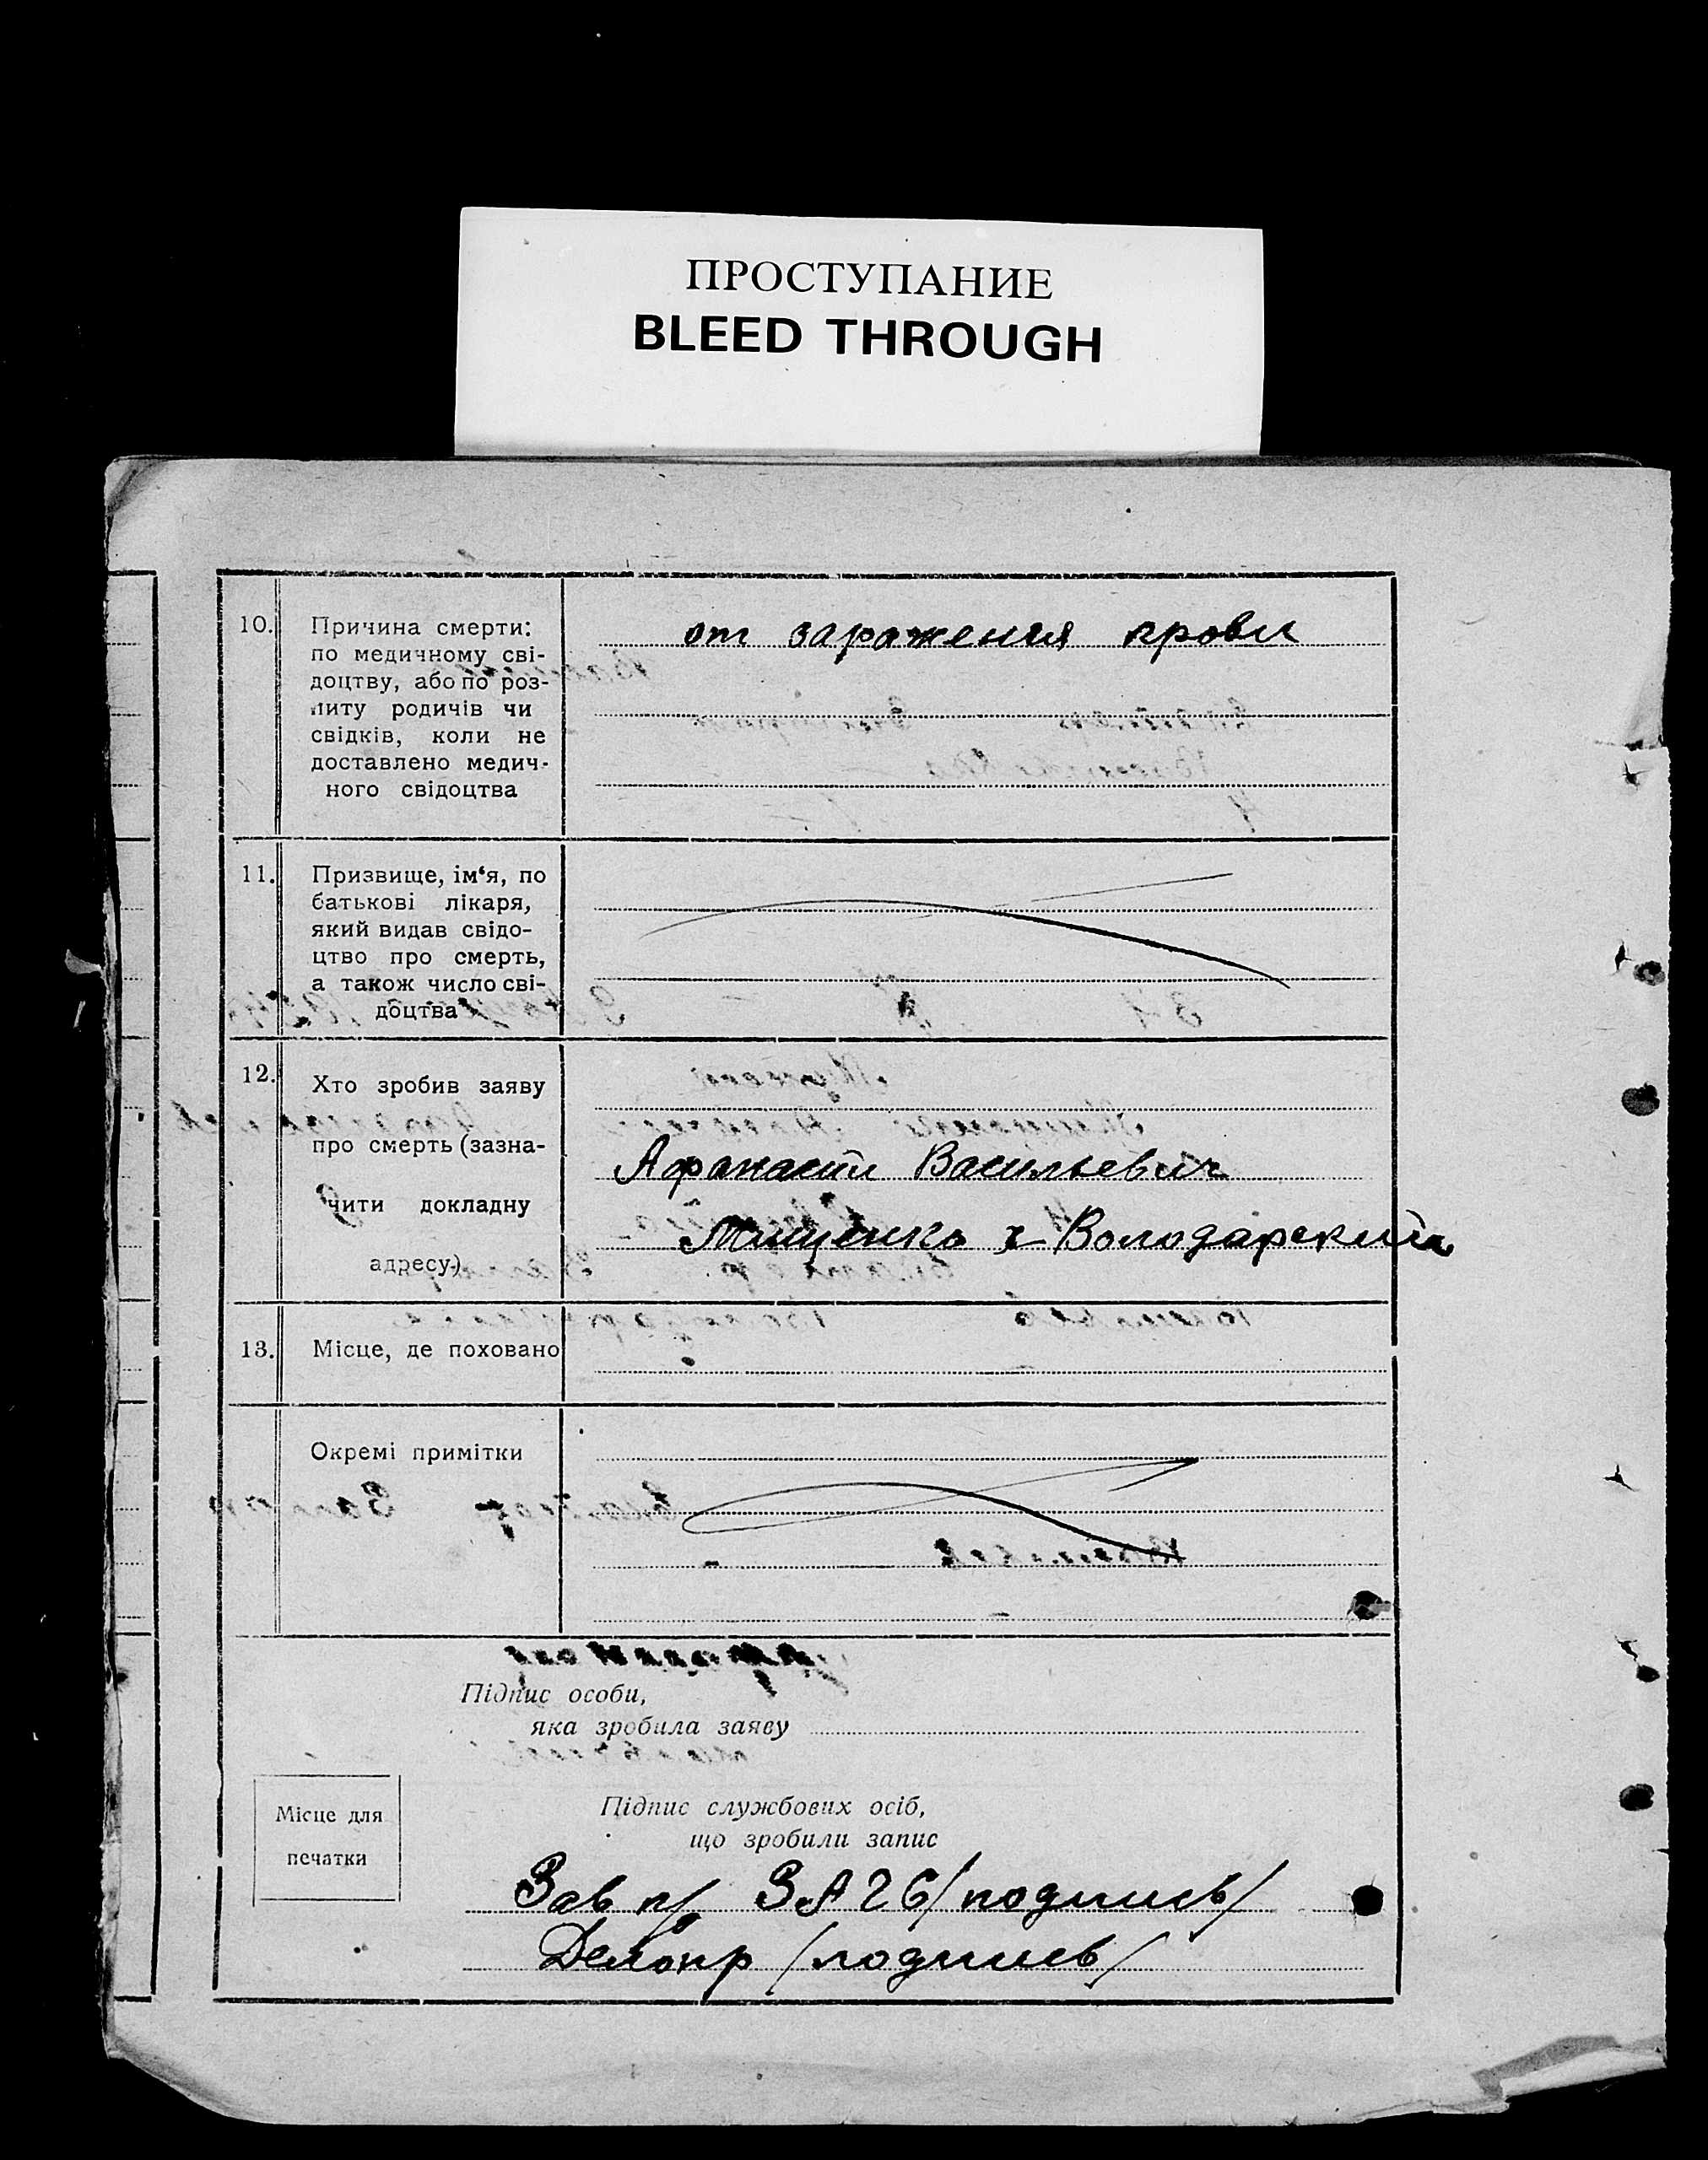 ПРОСТУПАНИЕ
BLEED THROUGH
10.
Причина смерти:
по медичному сві-
доцтву, або по роз-
питу родичів чи
свідків, коли не
доставлено медич-
ного свідоцтва
от заражения крови
11.
Призвище, ім‘я, по
батькові лікаря,
який видав свідо-
цтво про смерть,
а також число сві-
доцтва
12.
Хто зробив заяву
про смерть (зазна-
чити докладну
адресу)
Афанасий Васильевич
Мищенко х Володарский
13.
Місце, де поховано
—
Окремі примітки
Підпис особи,
яка зробила заяву
Місце для
печатки
Підпис службових осіб,
що зробили запис
Зав п/ ЗАГС /подпись/
Делопр /подпись/